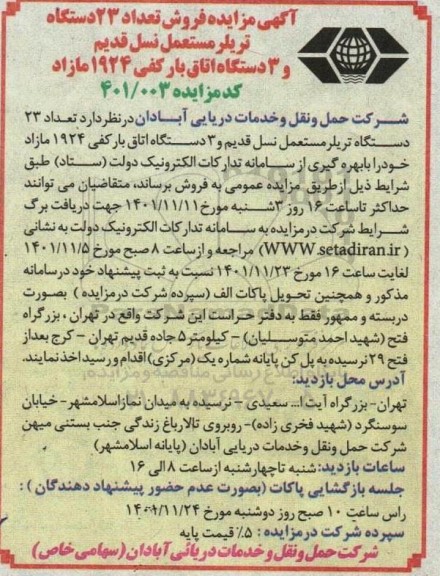 آگهی مزایده فروش تعداد ۲۳ دستگاه
تریلر مستعمل نسل قدیم
و ۳ دستگاه اتاق بار کفی ۱۹۲۴ مازاد
کد مزایده ۴۰۱/۰۰۳
شرکت حمل ونقل وخدمات دریایی آبادان درنظر دارد تعداد ۲۳
دستگاه تریلر مستعمل نسل قدیم و ۳ دستگاه اتاق بار کفی ۱۹۲۴ مازاد
خود را با بهره گیری از سامانه تدارکات الکترونیک دولت (ستاد) طبق
شرایط ذیل از طریق مزایده عمومی به فروش برساند، متقاضیان می توانند
حداکثر تا ساعت ۱۶ روز ۳شنبه مورخ ۱۴۰۱/۱۱/۱۱ جهت دریافت برگ
شرایط شرکت در مزایده به سامانه تدارکات الکترونیک دولت به نشانی
(WWW.setadiran.ir) مراجعه و از ساعت ۸ صبح مورخ ۱۴۰۱/۱۱/۵
لغایت ساعت ۱۶ مورخ ۱۴۰۱/۱۱/۲۳ نسبت به ثبت پیشنهاد خود در سامانه
مذکور و همچنین تحویل پاکات الف (سپرده شرکت در مزایده) بصورت
دربسته و ممهور فقط به دفتر حراست این شرکت واقع در تهران ، بزرگراه
فتح (شهید احمد متوسلیان) – کیلومتر ۵ جاده قدیم تهران – کرج بعد از
فتح ۲۹ نرسیده به پل کن پایانه شماره یک (مرکزی) اقدام و رسید اخذ نمایند.
آدرس محل بازدید:
تهران- بزرگراه آیت ا... سعیدی – نرسیده به میدان نماز اسلامشهر- خیابان
سوسنگرد (شهید فخری زاده)- روبروی تالار باغ زندگی جنب بستنی میهن
شرکت حمل ونقل وخدمات دریایی آبادان (پایانه اسلامشهر)
ساعات بازدید: شنبه تا چهارشنبه از ساعت ۸ الی ۱۶
جلسه بازگشایی پاکات (بصورت عدم حضور پیشنهاد دهندگان ) :
راس ساعت ۱۰ صبح روز دوشنبه مورخ ۱۴۰۱/۱۱/۲۴
سپرده شرکت در مزایده : ۵٪ قیمت پایه
شرکت حمل ونقل و خدمات دریائی آبادان (سهامی خاص)